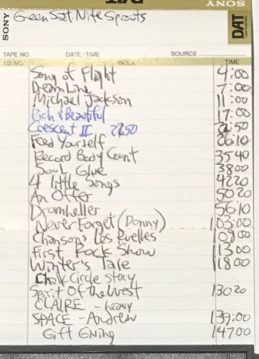 SONY
DAT
SONY
Green Sgt Nite Sprouts
TAPE NO. DATE / TIME SOURCE
I.D. NO. INDEX TIME
Song of Flight 4:00
Dream Line 7:00
Michael Jackson 11:00
Rich & Beautiful 17:00
Crescent II 22:50
Feed Yourself 26:10
Record Body Count 35 40
Soul Glue 38 00
4 little songs 42 20
An Offer 50 20
Drumheller 56 10
Never Forget (Donny) 1 03 00
Chansons Les Ruelles 1 09 50
First Rock Show 1 15 00
Winter's Tale 1 18 00
Chalk Circle story
Spirit Of the West 130 20
CLAIRE - heavy
SPACE - Andrew 139:00
Gift Ening 147 00